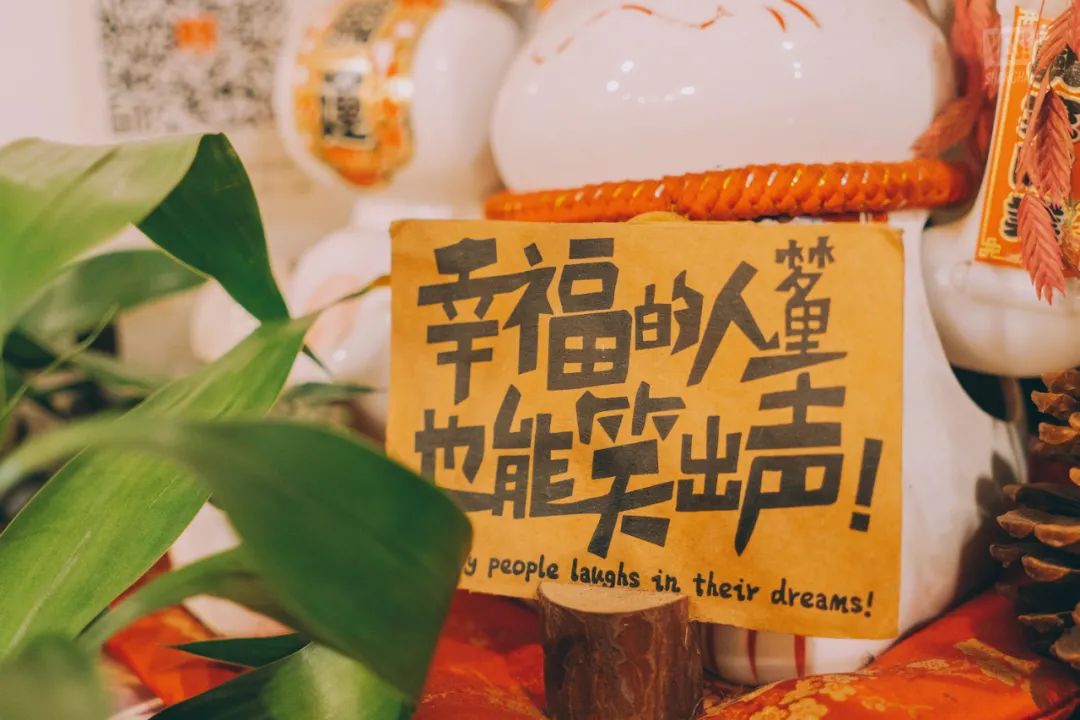 幸福的人梦里
也能笑出声!
people laughs in their dreams!